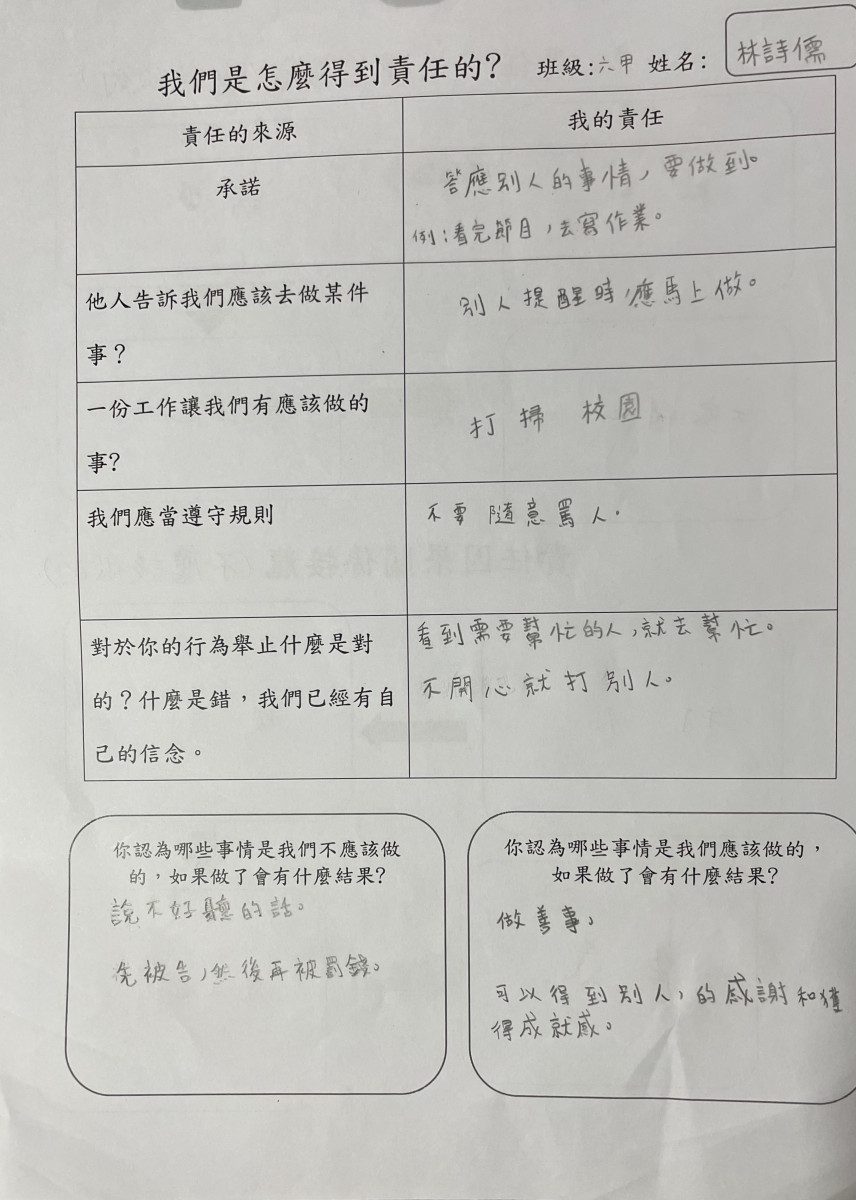 我們是怎麼得到責任的? 班級:六甲 姓名: 林詩儒
責任的來源
我的責任
承諾
答應別人的事情,要做到。
例:看完節目,去寫作業。
他人告訴我們應該去做某件
事?
別人提醒時,應馬上做。
一份工作讓我們有應該做的
事?
打掃 校園
我們應當遵守規則
不要隨意罵人.
對於你的行為舉止什麼是對
的?什麼是錯,我們已經有自
己的信念。
看到需要幫忙的人,就去幫忙。
不開心就打別人。
你認為哪些事情是我們不應該做
的,如果做了會有什麼結果?
說不好聽的話。
先被告,然後再被罰錢。
你認為哪些事情是我們應該做的,
如果做了會有什麼結果?
做善事。
可以得到別人,的感謝和獲
得成就感。